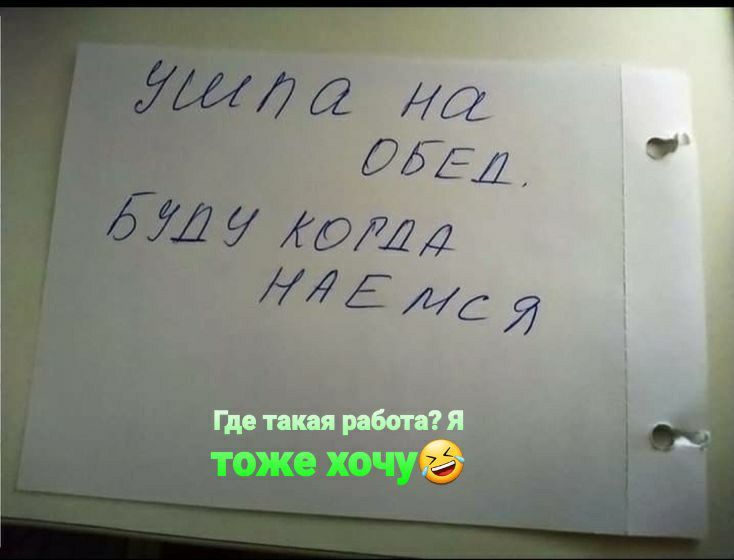 Ушла на
ОБЕД.
БУДУ КОГДА
НАЕМСЯ
Где такая работа? Я
тоже хочу🤣